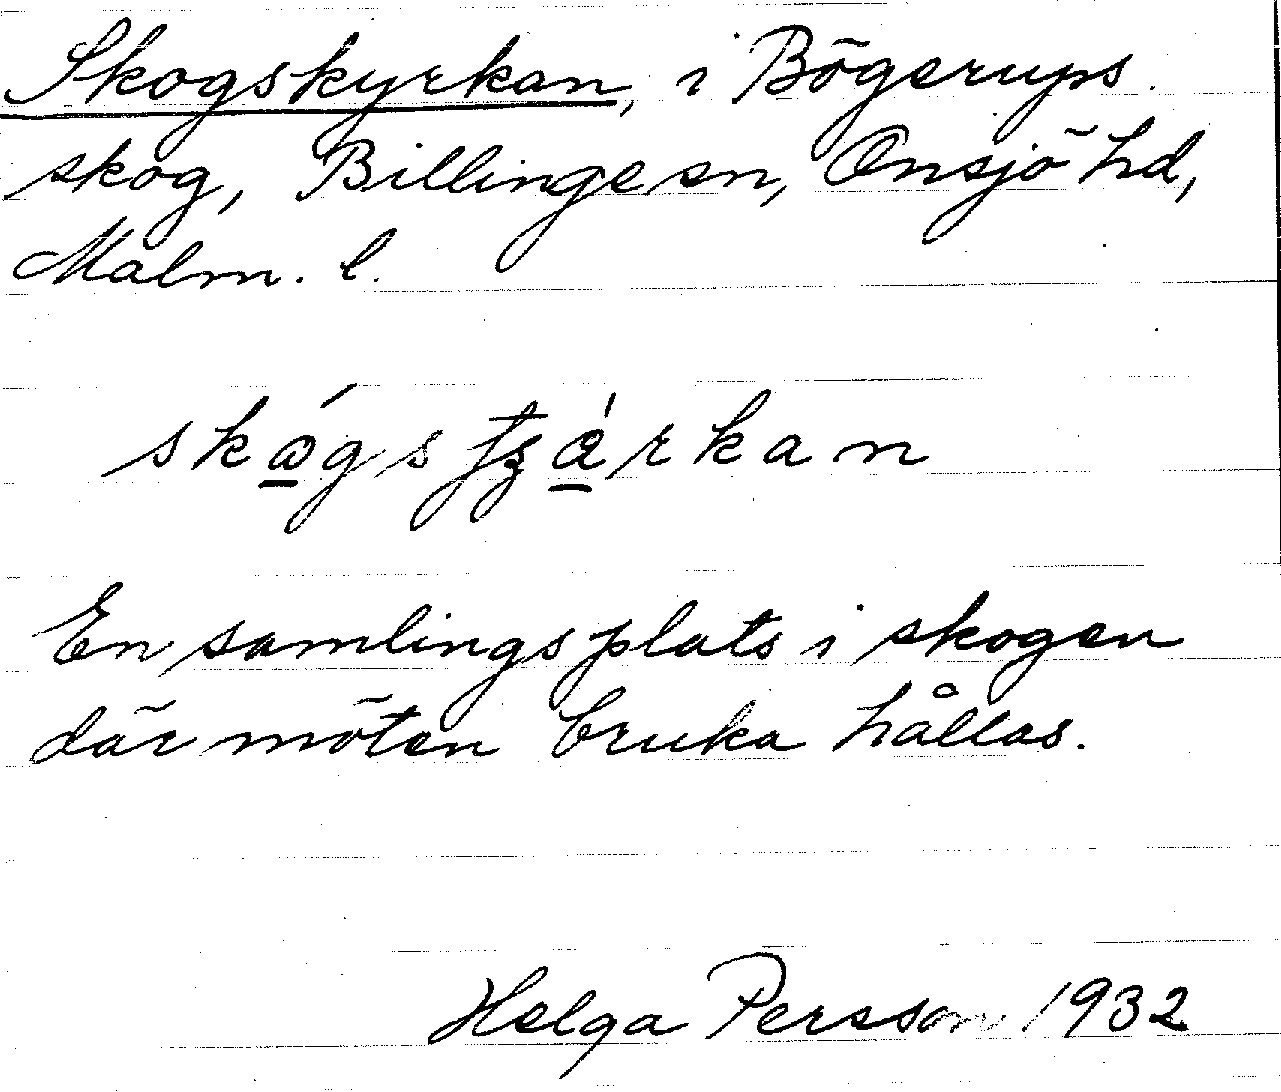 Skogskyrkan, i Bögerups
skog, Billinge sn, Onsjö hd,
Malm. l.
En samlingsplats i skogen
där möten bruka hållas.
Helga Persson 1932